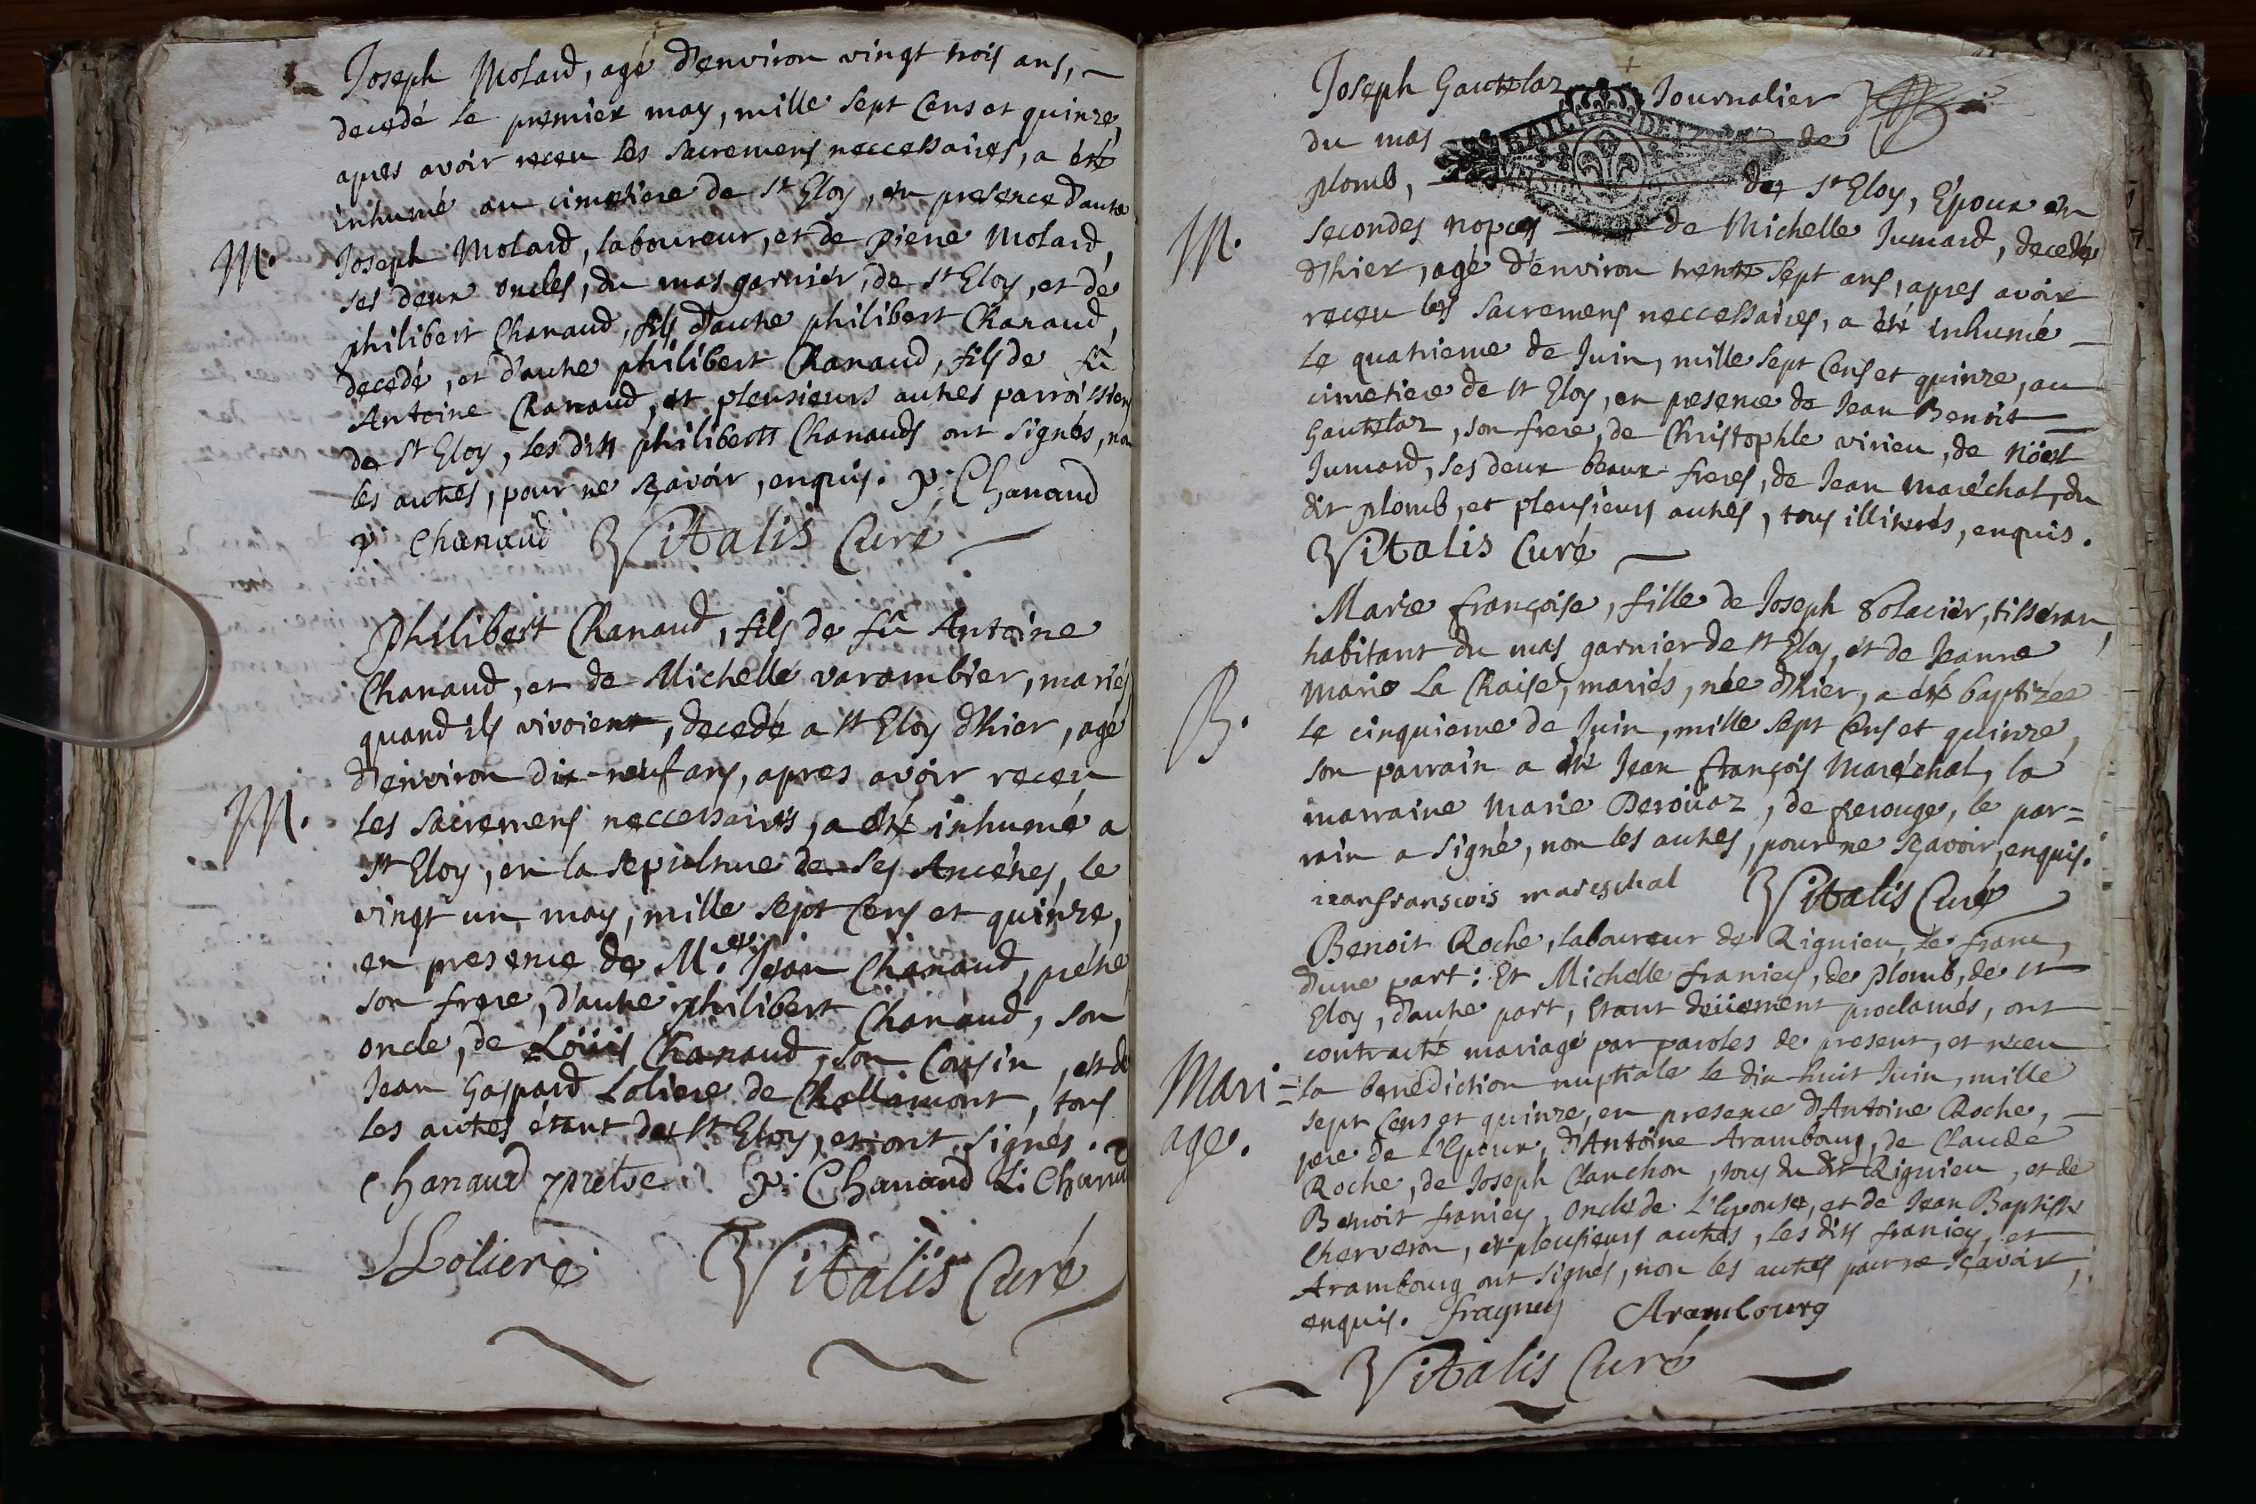 Joseph Molard, agé d'environ vingt trois ans,
decedé le premier may, mille sept cens et quinze,
apres avoir receu les sacremens neccessaires, a été
inhumé au cimetiere de St Eloy, en presence d'autre
M. Joseph Molard, laboureur, et de Piere Molard,
ses deux oncles, du mas garnier, de St Eloy, et de
philibert Chanaud, fils d'autre philibert Chanaud,
decedé, et d'autre philibert Chanaud, fils de fû
Antoine Chanaud, et pleusieurs autres parroissiens
de St Eloy, les dits philiberts Chanauds ont signés, non
les autres, pour ne sçavoir, enquis. P: Chanaud
P Chanaud Vitalis Curé
Philibert Chanaud, fils de fû Antoine
Chanaud, et de Michelle varambier, mariés
quand ils vivoient, decedé a St Eloy d'hier, agé
d'environ dix-neuf ans, apres avoir receu
M. les sacremens neccessaires, a été inhumé a
St Eloy, en la sepulture de ses Ancêtres, le
vingt un may, mille sept cens et quinze,
en presence de Mre. Jean Chanaud, prêtre
son frere, d'autre philibert Chanaud, son
oncle, de Loüis Chanaud, son Cousin, et de
Jean Gaspard Loliere de Challamont, tous
les autres étant de St Eloy, et ont signés.
Chanaud pretre P: Chanaud L: Chana
Loliere Vitalis Curé
Joseph Gautelaz Journalier
du mas de
plomb, de St Eloy, Époux en
M. secondes nopces de Michelle Jumard, decedé
d'hier, agé d'environ trente sept ans, apres avoir
receu les sacremens neccessaires, a été inhumé
le quatrieme de Juin, mille sept cens et quinze, au
cimetiere de St Eloy, en presence de Jean Benoit
Gautelaz, son frere, de Christophle virieu, de Nöel
Jumard, ses deux beaux-freres, de Jean Maréchal, du
dit plomb, et pleusieurs autres, tous illiterés, enquis.
Vitalis Curé
Marie françoise, fille de Joseph Solacier, tisseran
habitant du mas garnier de St Eloy, et de Jeanne
Marie La Chaise, mariés, née d'hier, a été baptizée
B. le cinquieme de Juin, mille sept cens et quinze,
son parrain a été Jean françois Maréchal, la
marraine Marie Deroüaz, de frerouge, le par=
rain a signé, non les autres, pour ne sçavoir, enquis.
ieanfranscois mareschal Vitalis Curé
Benoit Roche, laboureur de Rignieu le franc,
d'une part: Et Michelle franiey, de plomb, de St
Eloy, d'autre part, étant deüement proclamés, ont
contracté mariage par paroles de present, et receu
Mari= la benediction nuptiale le dix-huit Juin, mille
sept cens et quinze, en presence d'Antoine Roche,
age. pere de L'Epoux, d'Antoine Arambourg, de Claude
Roche, de Joseph Clanchon, tous du dit Rignieu, et de
Benoit franiey, Oncle de L'Epouse, et de Jean Baptiste
Cherveron, et pleusieurs autres, les dits franiey, et
Arambourg ont signés, non les autres pour ne sçavoir,
enquis. fragney Arambourg
Vitalis Curé